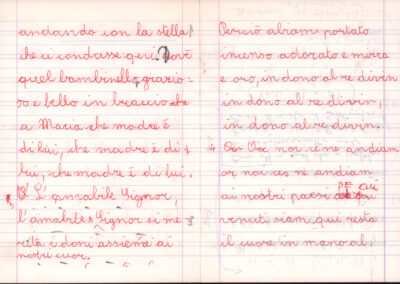 andando con la stella
che ci condusse qui. Dov'è
quel bambinello, grazio=
so e bello in braccio che
a Maria che madre è
di lui, che madre è di
lui, che madre è di lui.
3 L' amabile Signor,
l'amabile Signor si me
rita i doni assieme ai
nostri cuor.
Perciò abiam portato
incenso adorato e mirra
e oro, in dono al re divin
in dono al re divin,
in dono al re divin.
4 Or noi ce ne andiam
or noi ces ne andiam
ai nostri paesi
venuti siam, qui resta
il cuore in mano al.